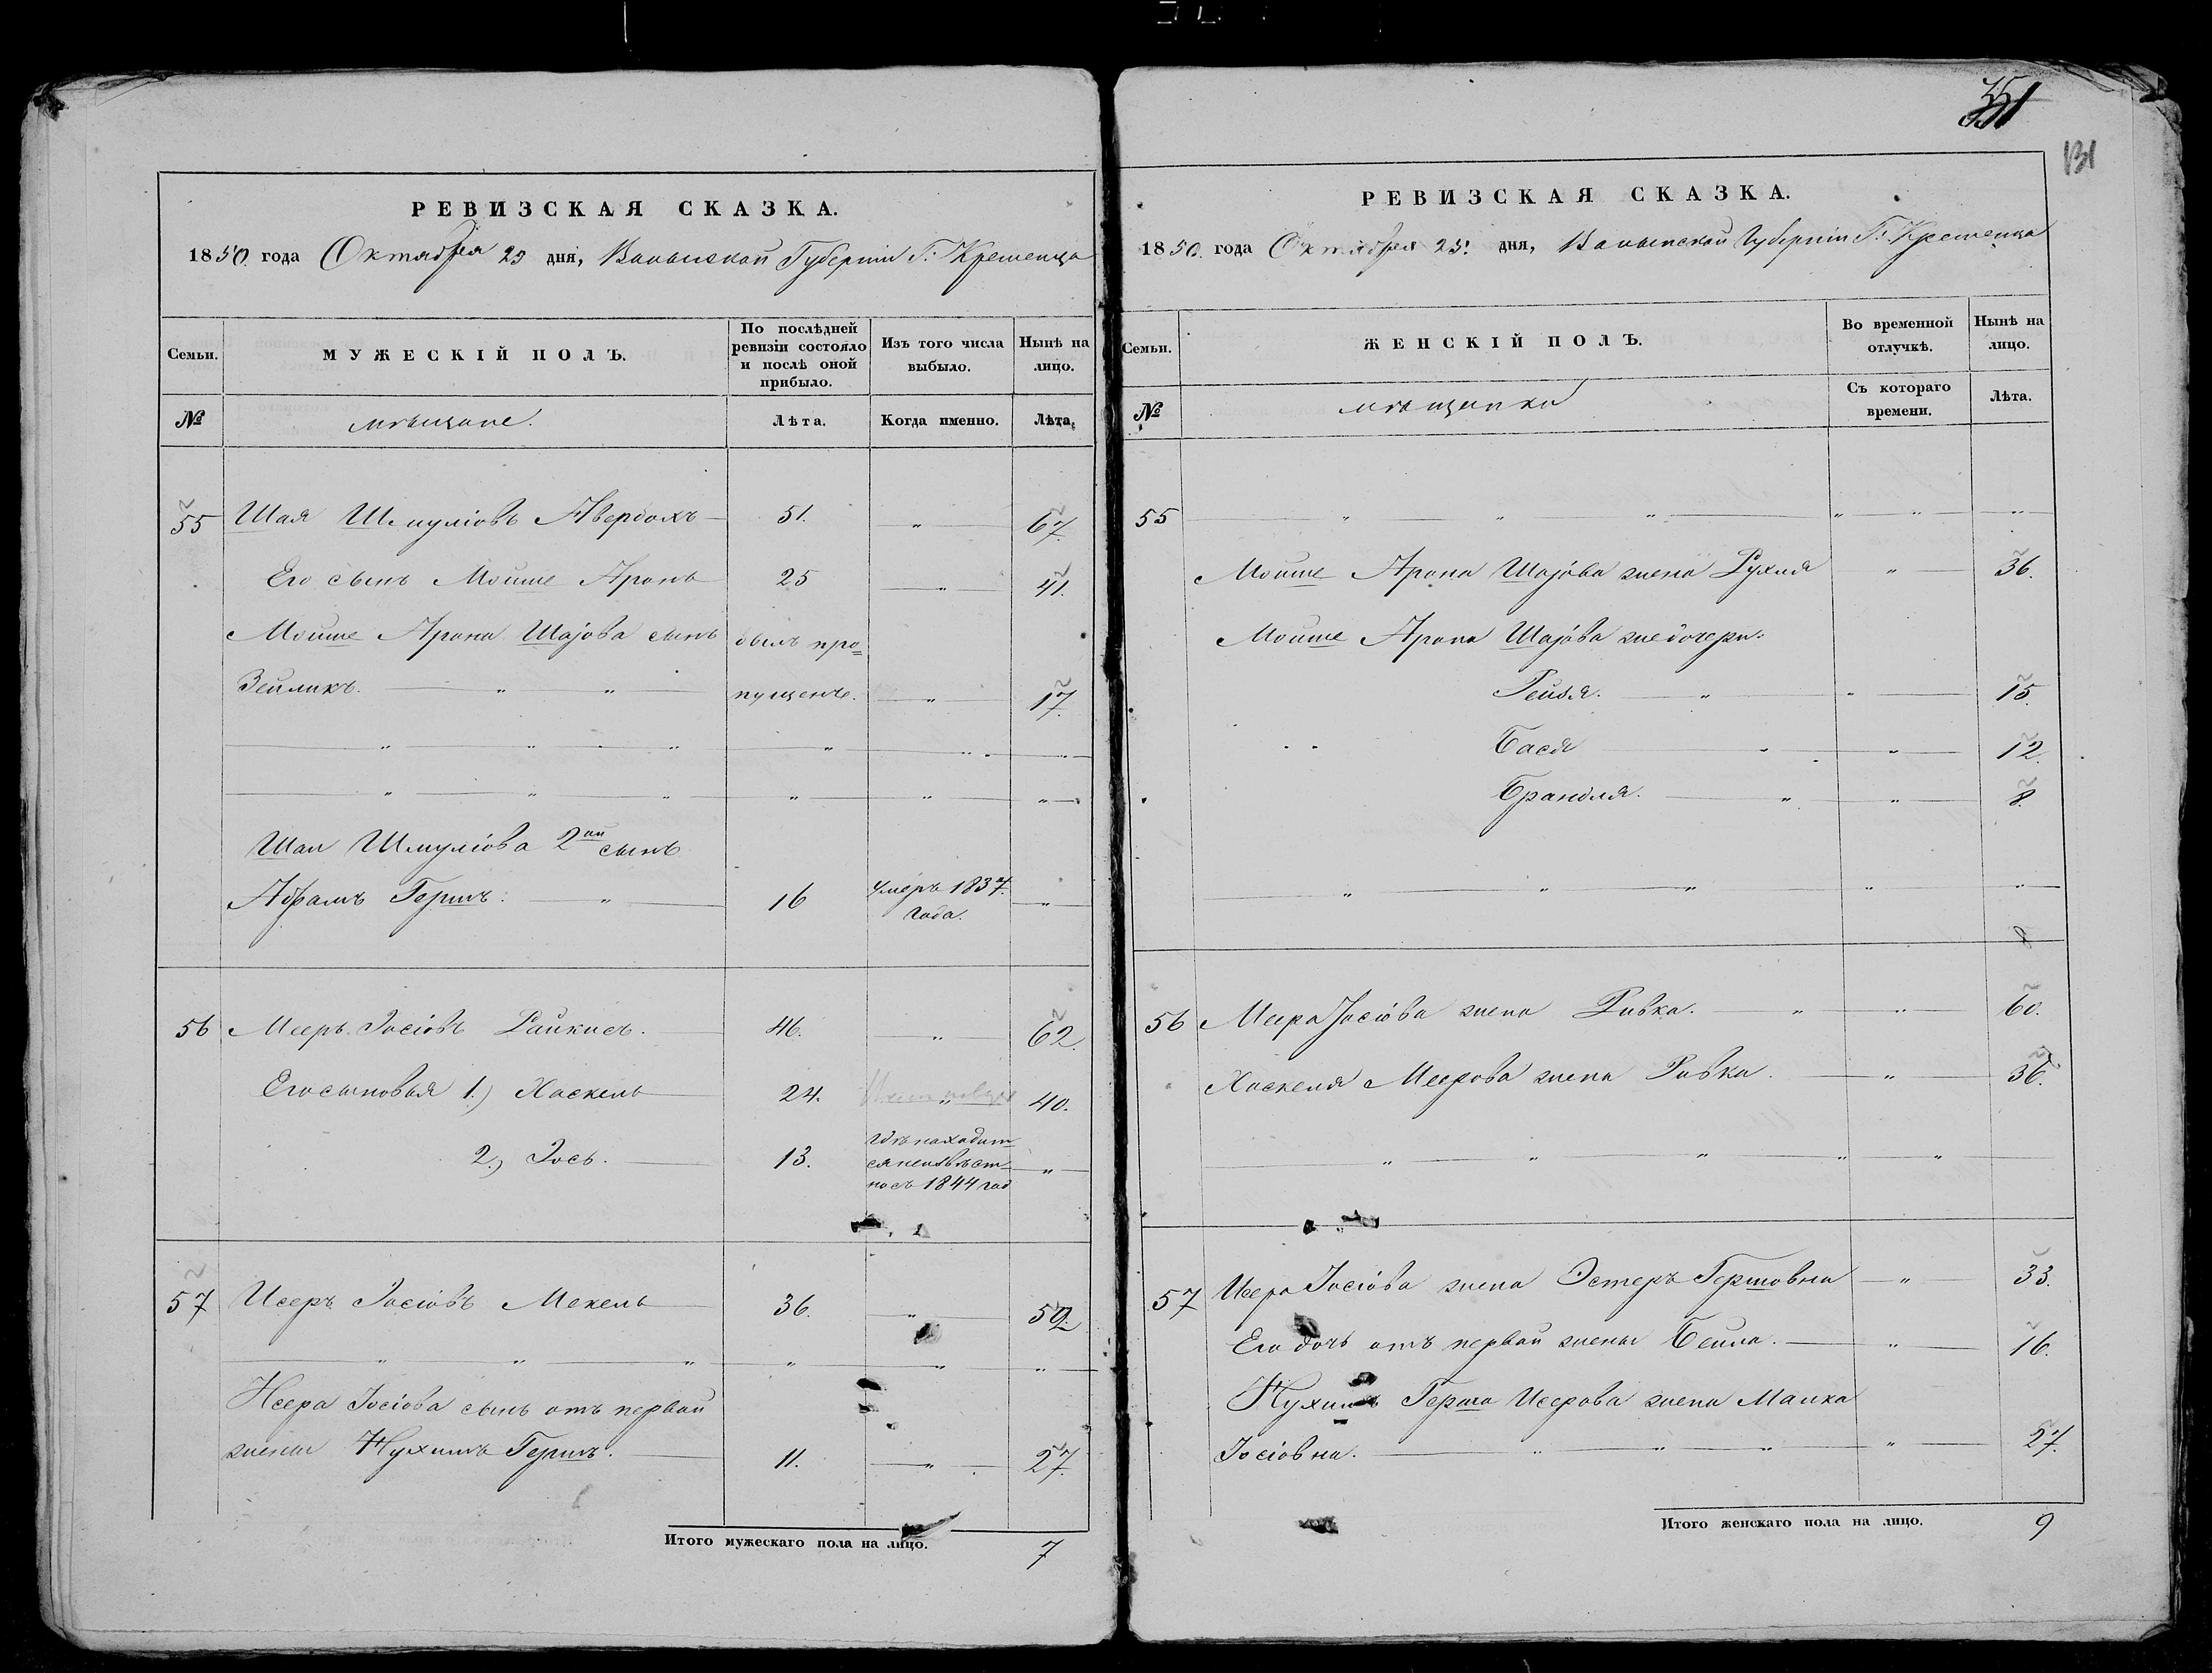 351
131
РЕВИЗСКАЯ СКАЗКА.
1850 года Октября 25 дня, Волынской Губерніи Г: Кременца
Семьи. МУЖЕСКІЙ ПОЛЪ. По послѣдней ревизіи состояло и послѣ оной прибыло. Изъ того числа выбыло. Нынѣ на лицо.
№ мѣщане. Лѣта. Когда именно. Лѣта.
55 Шая Шмуліовъ Авербахъ 51. " 67.
Его сынъ Мойше Аронъ 25 " 41.
Мойше Арона Шаіова сынъ былъ про=
Зейликъ. " " пущенъ. " 17.
" " " " " "
" " " " " "
Шаи Шмуліова 2ой сынъ
Абрамъ Гершъ: " 16 умеръ 1837. "
года.
56 Мееръ Іосіовъ 46. " 62.
Его сыновья 1.) Хаскель 24. " 40.
2.) Іось. 13. гдѣ находит= "
ся неизвѣст=
но съ 1844 год
57 Исеръ Іосіовъ Мекель 36. " 52.
" " " " " "
Исера Іосіова сынъ отъ первой
жены Нухимъ Гершъ. 11. " 27.
Итого мужескаго пола на лицо. 7
РЕВИЗСКАЯ СКАЗКА.
1850. года Октября 25: дня, Волынской Губерніи Г: Кременца
Семьи. ЖЕНСКІЙ ПОЛЪ. Во временной отлучкѣ. Нынѣ на лицо.
№ мѣщанки Съ котораго времени. Лѣта.
55 " " " " " "
Мойше Арона Шаіова жена Рухля " 36.
Мойше Арона Шаіова же дочери:
Рейзя. " " 15.
Бася " " 12.
Брандля. " " 8.
" " " " "
56 Меера Іосіова жена Ривка. " " 60.
Хаскеля Меерова жена Ривка. " 36.
" " " " "
57 Исера Іосіова жена Эстеръ Гершовна " 33.
Его дочь отъ первой жены Бейла. " 16.
Нухима Герша Исерова жена Малка
Іосіовна. " " " " 27.
Итого женскаго пола на лицо. 9